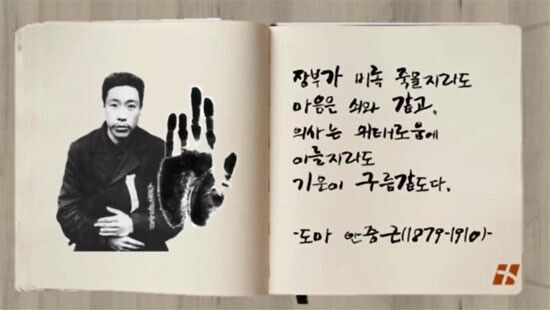 장부가 비록 죽을지라도
마음은 쇠와 같고,
의사는 위태로움에
이를지라도
기운이 구름같도다.
-도마 안중근(1879-1910)-